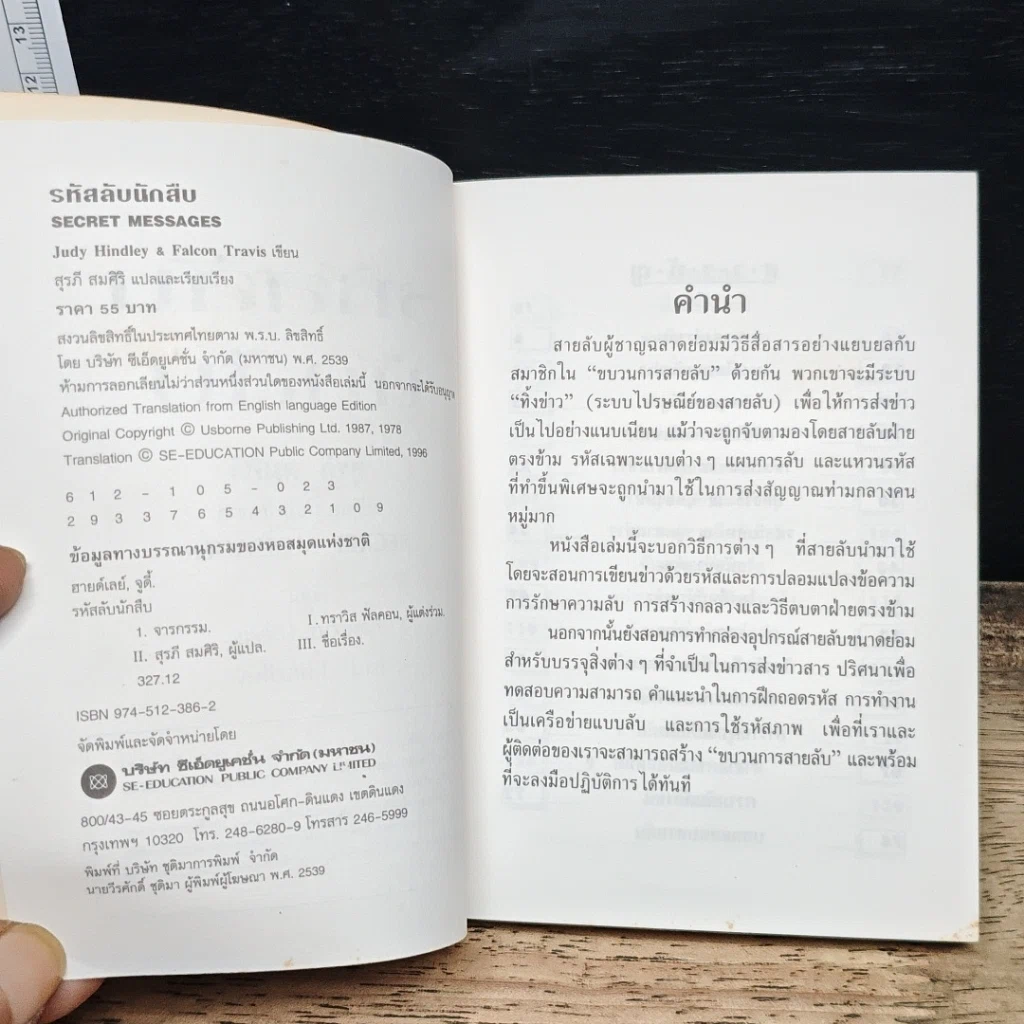 13
12
รหัสลับนักสืบ
SECRET MESSAGES
Judy Hindley & Falcon Travis เขียน
สุรภี สมศิริ แปลและเรียบเรียง
ราคา 55 บาท
สงวนลิขสิทธิ์ในประเทศไทยตาม พ.ร.บ. ลิขสิทธิ์
โดย บริษัท ซีเอ็ดยูเคชั่น จำกัด (มหาชน) พ.ศ. 2539
ห้ามการลอกเลียนไม่ว่าส่วนหนึ่งส่วนใดของหนังสือเล่มนี้ นอกจากจะได้รับอนุญาต
Authorized Translation from English language Edition
Original Copyright © Usborne Publishing Ltd. 1987, 1978
Translation © SE-EDUCATION Public Company Limited, 1996
6 1 2 - 1 0 5 - 0 2 3
2 9 3 3 7 6 5 4 3 2 1 0 9
ข้อมูลทางบรรณานุกรมของหอสมุดแห่งชาติ
ฮายด์เลย์, จูดี้.
รหัสลับนักสืบ
1. จารกรรม. I.ทราวิส ฟัลคอน, ผู้แต่งร่วม.
II. สุรภี สมศิริ, ผู้แปล. III. ชื่อเรื่อง.
327.12
ISBN 974-512-386-2
จัดพิมพ์และจัดจำหน่ายโดย
บริษัท ซีเอ็ดยูเคชั่น จำกัด (มหาชน)
SE-EDUCATION PUBLIC COMPANY LIMITED
800/43-45 ซอยตระกูลสุข ถนนอโศก-ดินแดง เขตดินแดง
กรุงเทพฯ 10320 โทร. 248-6280-9 โทรสาร 246-5999
พิมพ์ที่ บริษัท ชุติมาการพิมพ์ จำกัด
นายวีรศักดิ์ ชุติมา ผู้พิมพ์ผู้โฆษณา พ.ศ. 2539
คำนำ
สายลับผู้ชาญฉลาดย่อมมีวิธีสื่อสารอย่างแยบยลกับ
สมาชิกใน “ขบวนการสายลับ” ด้วยกัน พวกเขาจะมีระบบ
“ทิ้งข่าว” (ระบบไปรษณีย์ของสายลับ) เพื่อให้การส่งข่าว
เป็นไปอย่างแนบเนียน แม้ว่าจะถูกจับตามองโดยสายลับฝ่าย
ตรงข้าม รหัสเฉพาะแบบต่าง ๆ แผนการลับ และแหวนรหัส
ที่ทำขึ้นพิเศษจะถูกนำมาใช้ในการส่งสัญญาณท่ามกลางคน
หมู่มาก
หนังสือเล่มนี้จะบอกวิธีการต่าง ๆ ที่สายลับนำมาใช้
โดยจะสอนการเขียนข่าวด้วยรหัสและการปลอมแปลงข้อความ
การรักษาความลับ การสร้างกลลวงและวิธีตบตาฝ่ายตรงข้าม
นอกจากนั้นยังสอนการทำกล่องอุปกรณ์สายลับขนาดย่อม
สำหรับบรรจุสิ่งต่าง ๆ ที่จำเป็นในการส่งข่าวสาร ปริศนาเพื่อ
ทดสอบความสามารถ คำแนะนำในการฝึกถอดรหัส การทำงาน
เป็นเครือข่ายแบบลับ และการใช้รหัสภาพ เพื่อที่เราและ
ผู้ติดต่อของเราจะสามารถสร้าง “ขบวนการสายลับ” และพร้อม
ที่จะลงมือปฏิบัติการได้ทันที